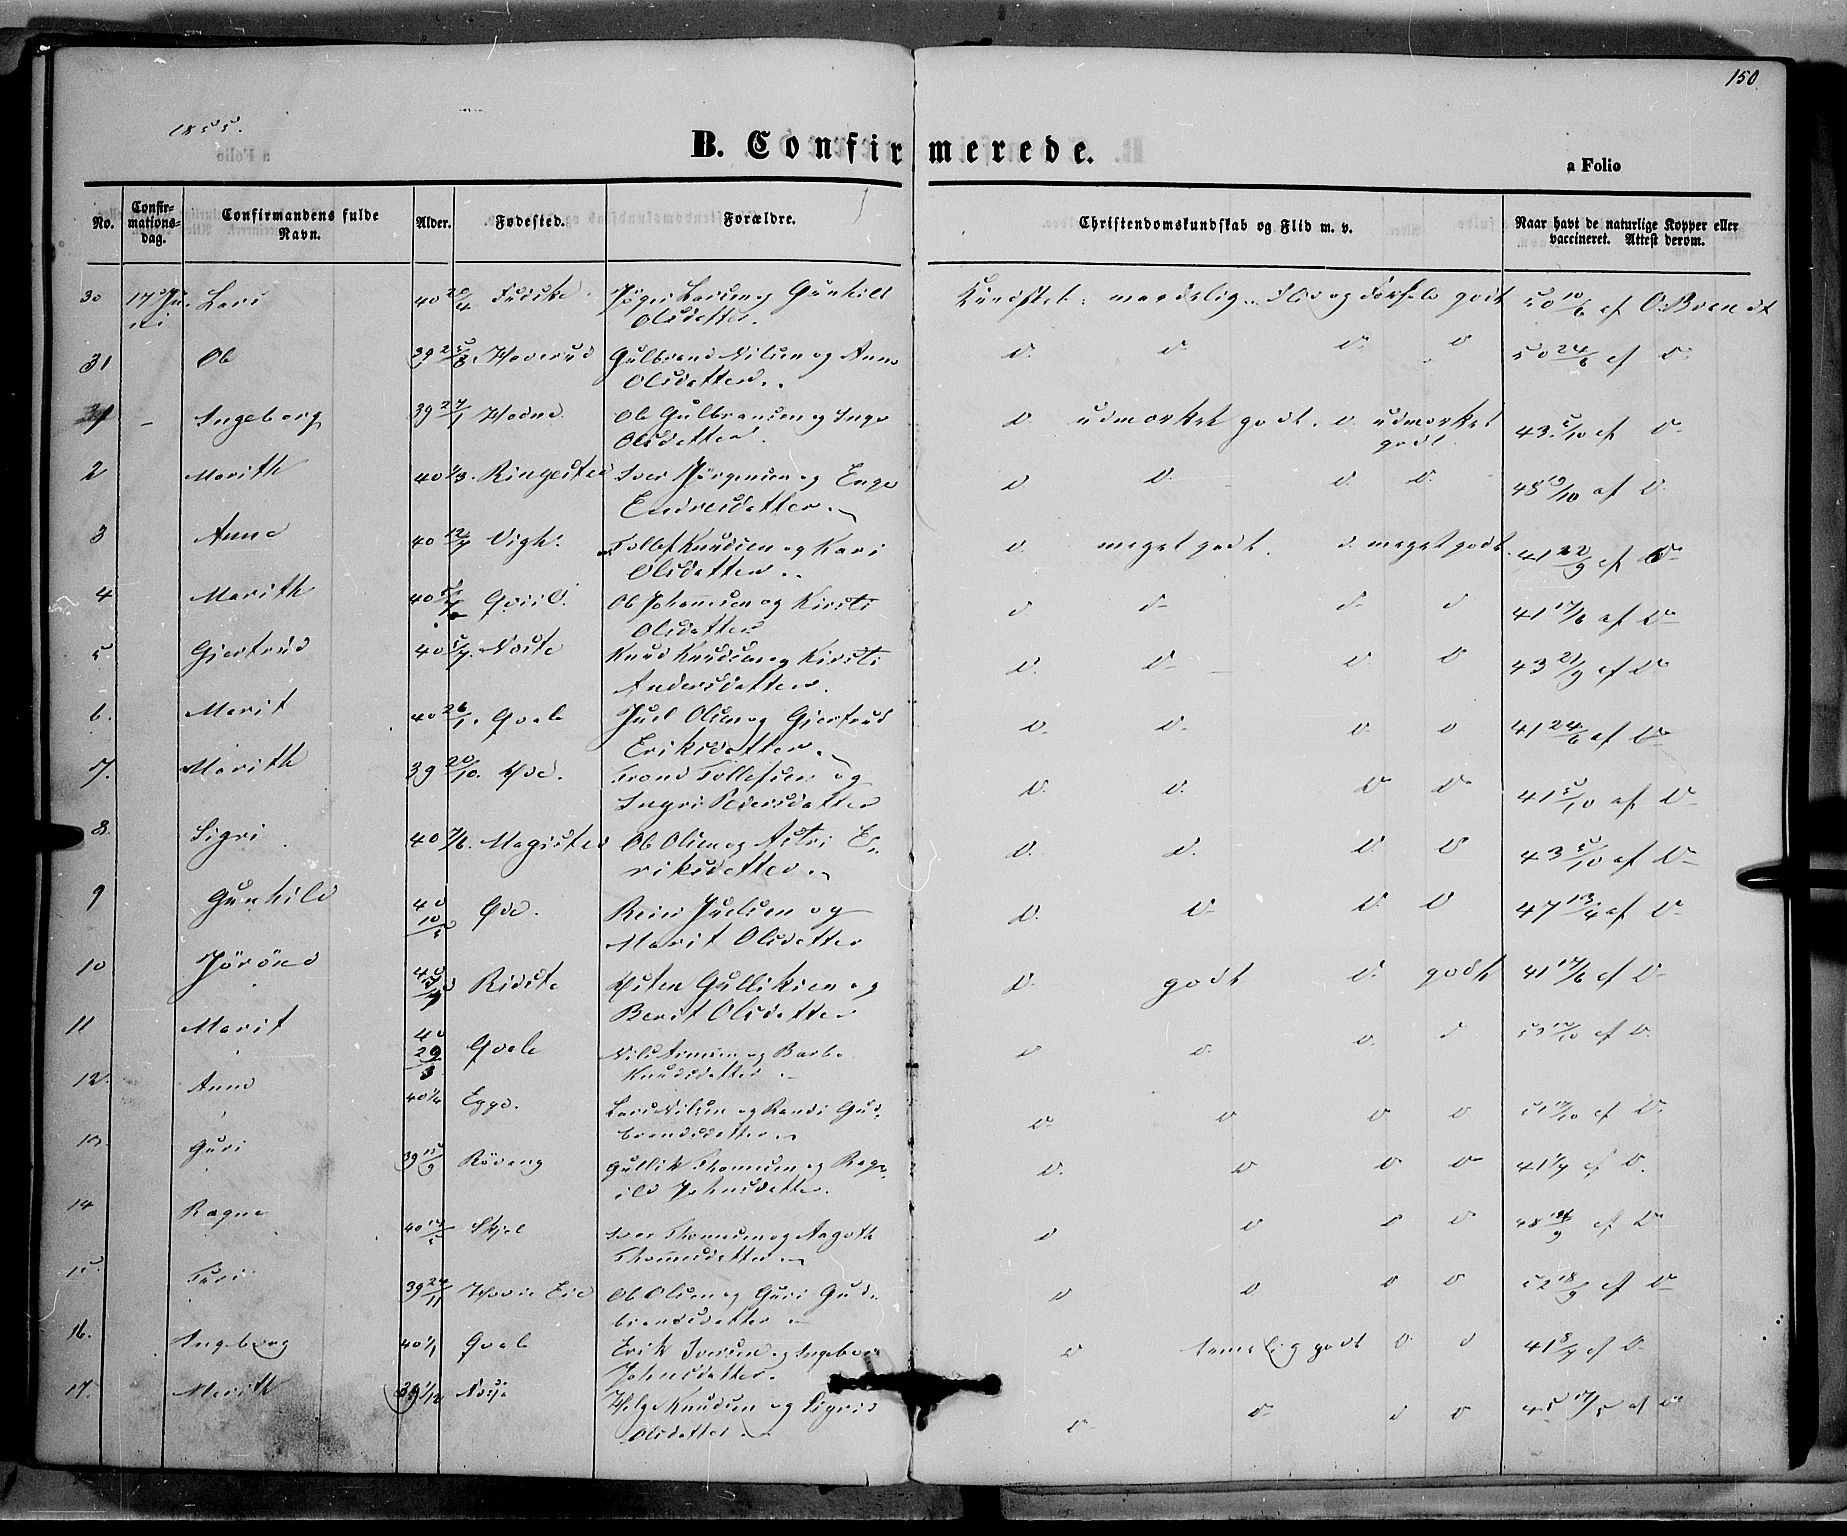 150.
1855.
B. Confirmerede.
a Folio
No. Confirmationsdag. Confirmandens fulde Navn. Alder. Fødested. Forældre. Christendomskundskab og Flid m. v. Naar havt de naturlige Kopper eller vaccineret. Attest derom.
30 17 Juni Lars 40 Larsen og Gunhild Olsdatter. Kundskab: maadelig. Flid og godt 50 10/6 af O. Brandt
31 Ole 39 25/3 Haverud Gulbrand Nilsen og Anne Olsdatter. D. D. D. D 50 24/6 af D.
- Ingeborg 39 27/1 Ole Gulbrandsen og Inge Olsdatter. D udmærket godt. D. udmærket godt 43 5/10 af D
2 Marith 40 1/3. Ringestad Iver Jörgensen og Inge Endresdatter. D D. D D. 48 19/10 af D.
3 Anne 40 12/4 Vigh. Tollef Knudsen og Kari Olsdatter. D. meget godt. D. meget godt. 41 22/9 af D
4 Marith 40 Ole Johannesen og Kirsti Olsdatter D D D D 41 17/6 af D
5 Gjertrud 40 5/7. Noste Knud Knudsen og Kirsti Andersdatter. D. D D D 43 21/9 af D
6. Marit 40 26/1. Qvale Juel Olsen og Gjertrud Eriksdatter. D. D. D. D 41 24/6 af D
7. Marith 39 20/10. Øde. Trond Tollefsen og Ingri Pedersdatter D. D. D D 41 5/10 af D
8. Sigri 40 7/6. Magistad Ole Olsen og Astri Eriksdatter. D. D. D. D 43 5/10 af D
9 Gunhild 40 10/5 Øde. Reier Juelsen og Marit Olsdatter D. D D. D 47 13/4 af D
10 Jörönd 40 Ridste Østen Gulliksen og Berit Olsdatter D. godt D. godt 41 17/6 af D
11 Marit 40 29/3 Qvale Nils Arnesen og Barbo Knudsdatter D D. D. D af D.
12. Anne 40 1/6 Egge. Lars Nilsen og Randi Gudbrandsdatter D D D D af D.
13. Guri 39 15/9 Röveng Gullik Thomesen og Ragnild Johnsdatter. D. D D D 41 1/7 af D.
14 Ragne 40 Skjel Iver Thomesen og Aagoth Thomesdatter D D D D 48 af D
15. Turi 39 24/11 Hovie Eie Ole Olsen og Guri Gudbrandsdatter D D D D 52 18/9 af D
16. Ingeborg 40 1/1 Qvale Erik Iversen og Ingebor Johnsdatter. D temelig godt D D 41 8/7 af D
17. Marith 39 1/12 Helge Knudsen og Sigrid Olsdatter D D D D 45 17/5 af D